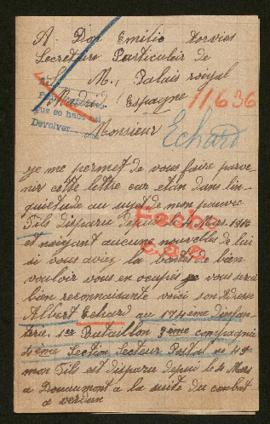 A Don Emilio
Secretaire Particulier de
S. M., Palais royal
Madrid Espagne 11,636
que se hace
Devolver
Monsieur Echard
je me permet de vous faire parve
nir cette lettre car etan dans l'in
quietude au sujet de mon pauvre
Fils disparu Depuis 4 Mars 1916
Fecho
et naiyant aucune nouvelles de lui
si vous aviez la bonté bien
vouloir vous en occupés je vous serai
E.a.e.
bien reconnaisante voici son Adresse
Albert Echard au 174eme D'enfan
terie, 1er Bataillon 3eme compagnie
4eme Section Secteur Postal no 49
mon Fils est disparu Depui le 4 Mars
a Douaumont a la suite du combat
a verdun